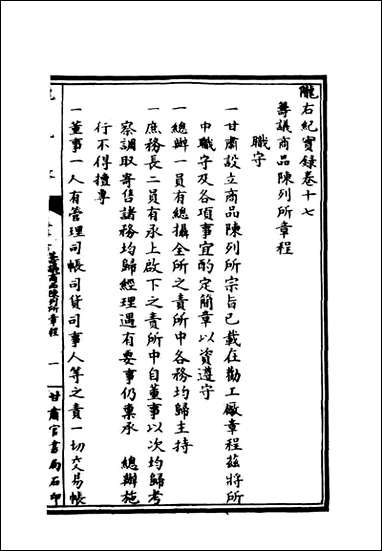 隴右紀實錄卷十七
籌議商品陳列所章程
職守
一甘肅設立商品陳列所宗旨已載在勸工廠章程茲將所
中職守及各項事宜酌定簡章以資遵守
一總辦一員有總攝全所之責所中各務均歸主持
一庶務長二員有承上啟下之責所中自董事以次均歸考
察調取寄售諸務均歸經理遇有要事仍稟承 總辦施
行不得擅專
一董事一人有管理司帳司貨司事人等之責一切交易帳
籌議商品陳列所章程
一
甘肅官書局石印